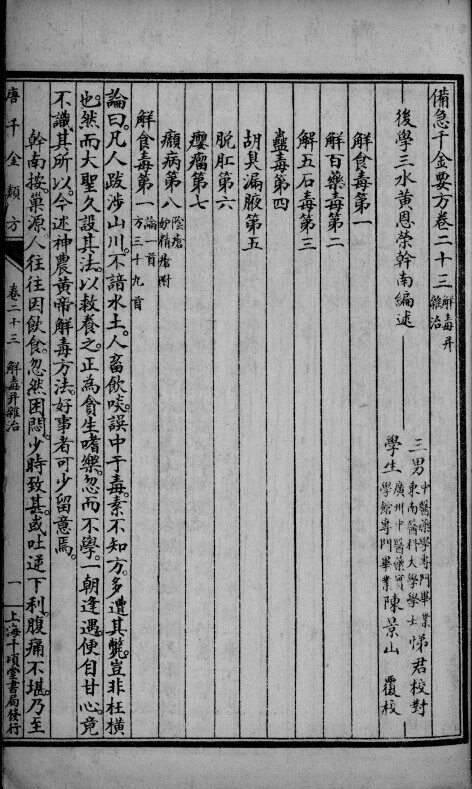 備急千金要方卷二十三 解毒并雜治
後學三水黃恩榮幹南編述
三男 中醫藥學專門畢業 東南醫科大學學士 悌君校對
學生 廣州中醫藥實學館專門畢業 陳景山 覆校
解食毒第一
解百藥毒第二
解五石毒第三
蠱毒第四
胡臭漏腋第五
脫肛第六
癭瘤第七
㿗病第八 陰瘡 妒精瘡附
解食毒第一 論一首 方三十九首
論曰。凡人跋涉山川。不諳水土。人畜飲啖。誤中于毒。素不知方。多遭其斃。豈非枉橫
也。然而大聖久設其法。以救養之。正為貪生嗜樂。忽而不學。一朝逢遇。便自甘心。竟
不識其所以。今述神農黃帝解毒方法。好事者可少留意焉。
幹南按。藥源人往往因飲食。忽然困悶。少時致甚。或吐逆下利。腹痛不堪。乃至
唐千金類方 卷二十三 解毒并雜治 一 上海千頃堂書局發行